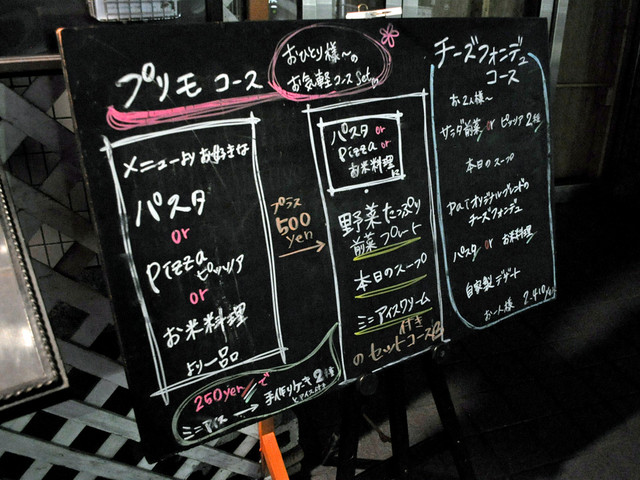 プリモ コース
おひとり様〜の
お気軽コース Set
メニューより お好きな
パスタ
or
Pizza ピッツァ
or
お米料理
より一品
プラス
500
yen
パスタ or
Pizza or
お米料理
野菜たっぷり
前菜プレート
本日のスープ
ミニアイスクリーム
付き
のセットコース
250yen で
ミニアイス → 手作りケーキ2種
とアイス付き
チーズフォンデュ
コース
お2人様〜
サラダ前菜 or ピッツァ2種
本日のスープ
オリジナルブレンドの
チーズフォンデュ
パスタ or お料理
自家製デザート
お一人様 2,410yen